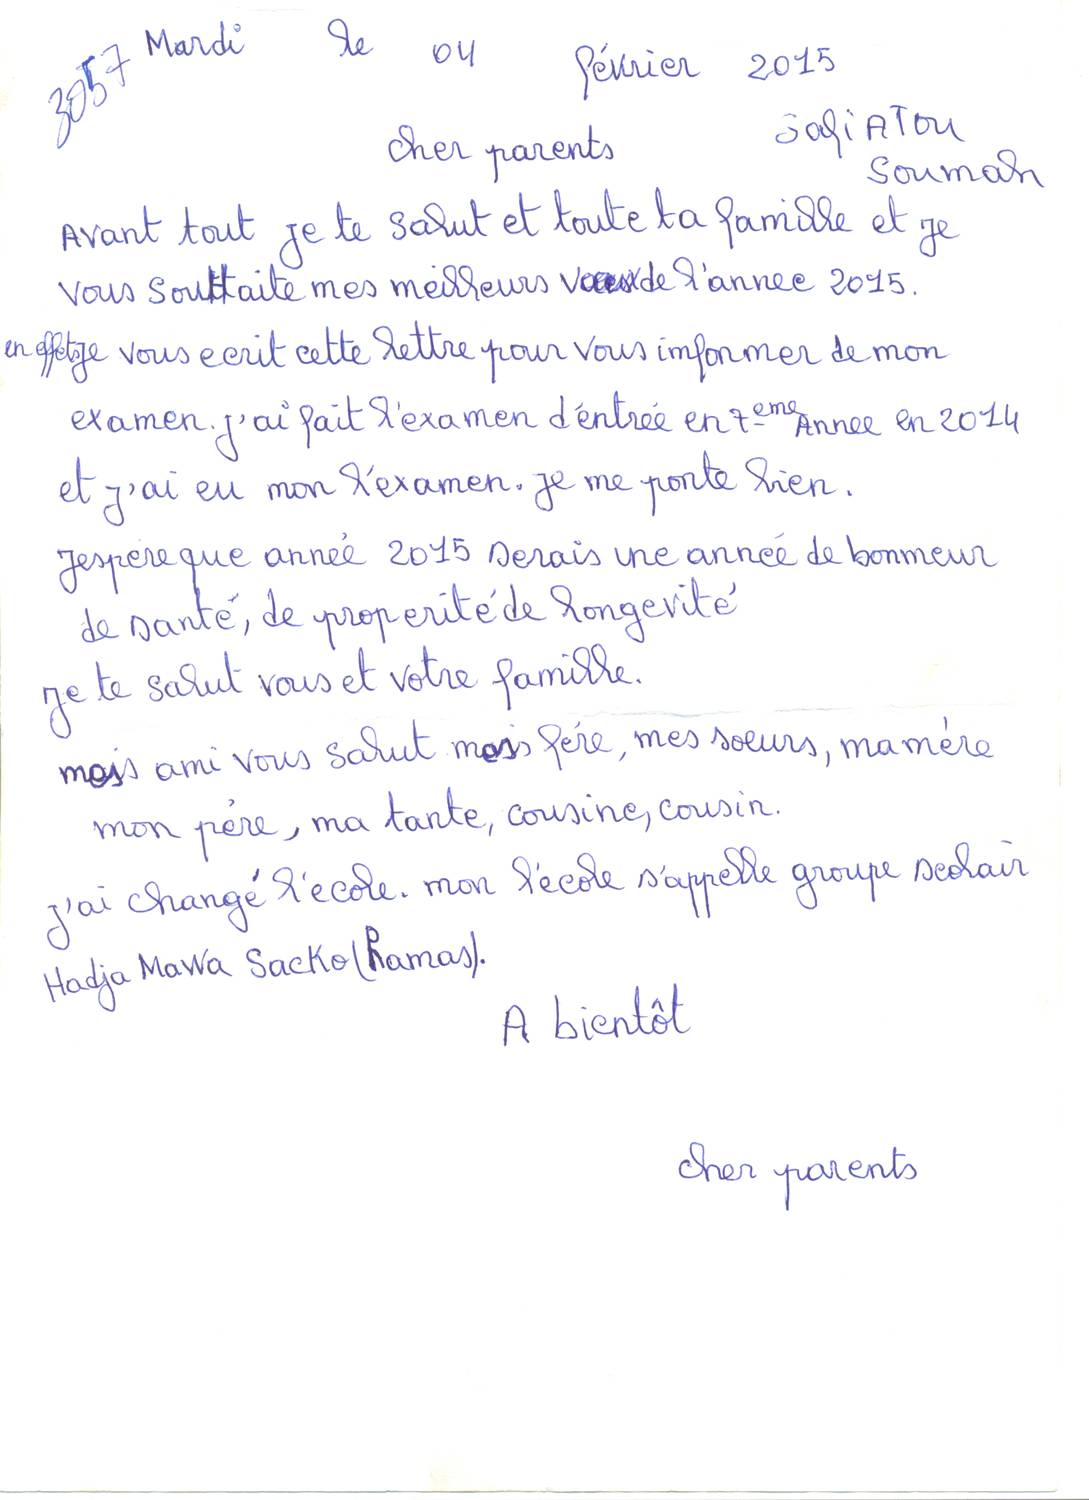 3057
Mardi le 04 février 2015
Safiatou
Soumah
cher parents
Avant tout je te salut et toute ta famille et je
vous souttaite mes meilleurs vœux de l'annee 2015.
en effet je vous ecrit cette lettre pour vous informer de mon
examen. j'ai fait l'examen d'éntrée en 7eme Annee en 2014
et j'ai eu mon l'examen. je me porte bien.
Jespère que année 2015 serais une année de bonmeur
de santé, de properité de longevité
je te salut vous et votre famille.
mais ami vous salut mais fére, mes soeurs, ma mére
mon père, ma tante, cousine, cousin.
j'ai changé l'école. mon l'école s'appelle groupe scolair
Hadja Mawa Sacko (Hamas).
A bientôt
cher parents